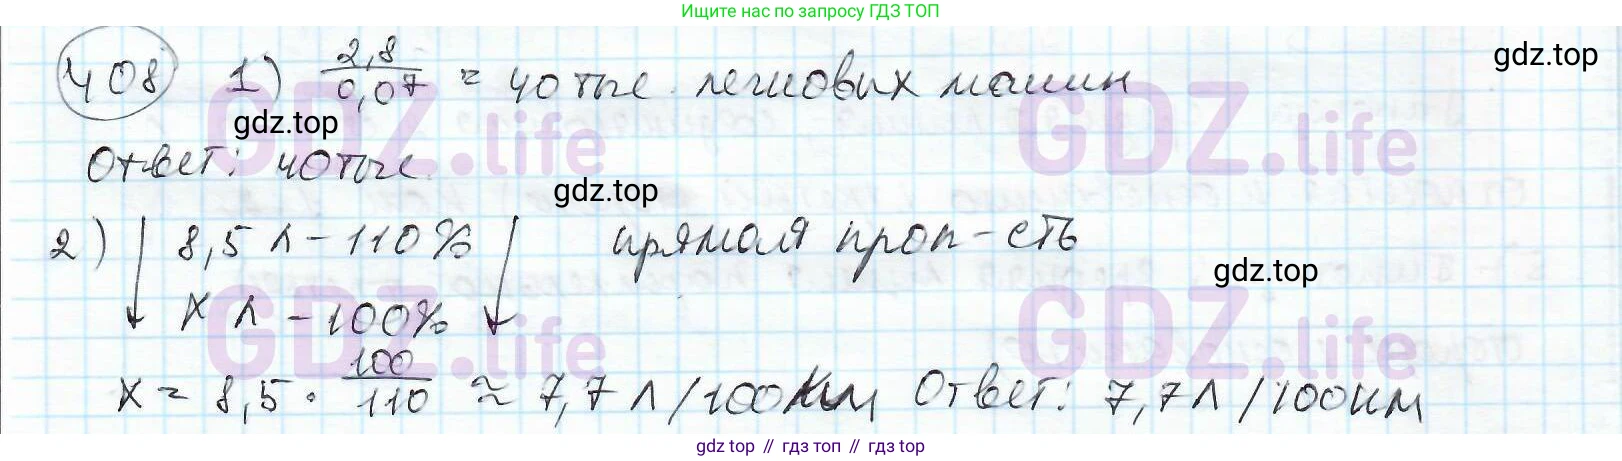 Ищите нас по запросу ГДЗ ТОП
gdz.top
408 1) 2,8 / 0,07 = 40 тыс. легковых машин
gdz.top
Ответ: 40 тыс.
gdz.top
2) ↓ 8,5 л – 110% ↓ прямая проп-сть
gdz.top
x л – 100%
x = 8,5 · 100/110 ≈ 7,7 л/100км Ответ: 7,7 л/100км
GDZ.life GDZ.life GDZ.life
GDZ.life GDZ.life GDZ.life
gdz.top // гдз топ // gdz.top